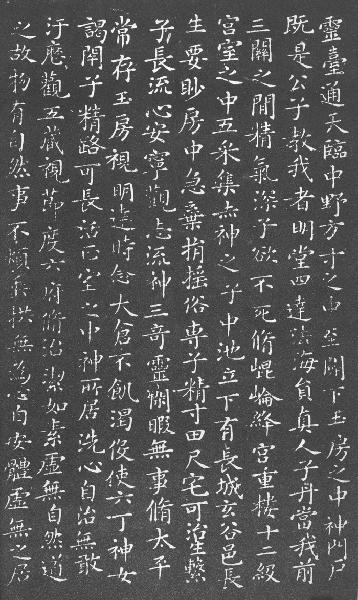 靈臺通天臨中野方寸之中至關下玉房之中神門戶
既是公子教我者明堂四達法海員真人子丹當我前
三關之間精氣深子欲不死脩崐崘絳宮重樓十二級
宮室之中五采集赤神之子中池立下有長城玄谷邑長
生要眇房中急棄捐搖俗專子精寸田尺宅可治生繫
子長流心安寧觀志流神三奇靈閑暇無事脩太平
常存玉房視明達時念大倉不飢渴役使六丁神女
謁閉子精路可長活正室之中神所居洗心自治無敢
汙歷觀五藏視節度六府脩治潔如素虛無自然道
之故物有自然事不煩垂拱無為心自安體虛無之居